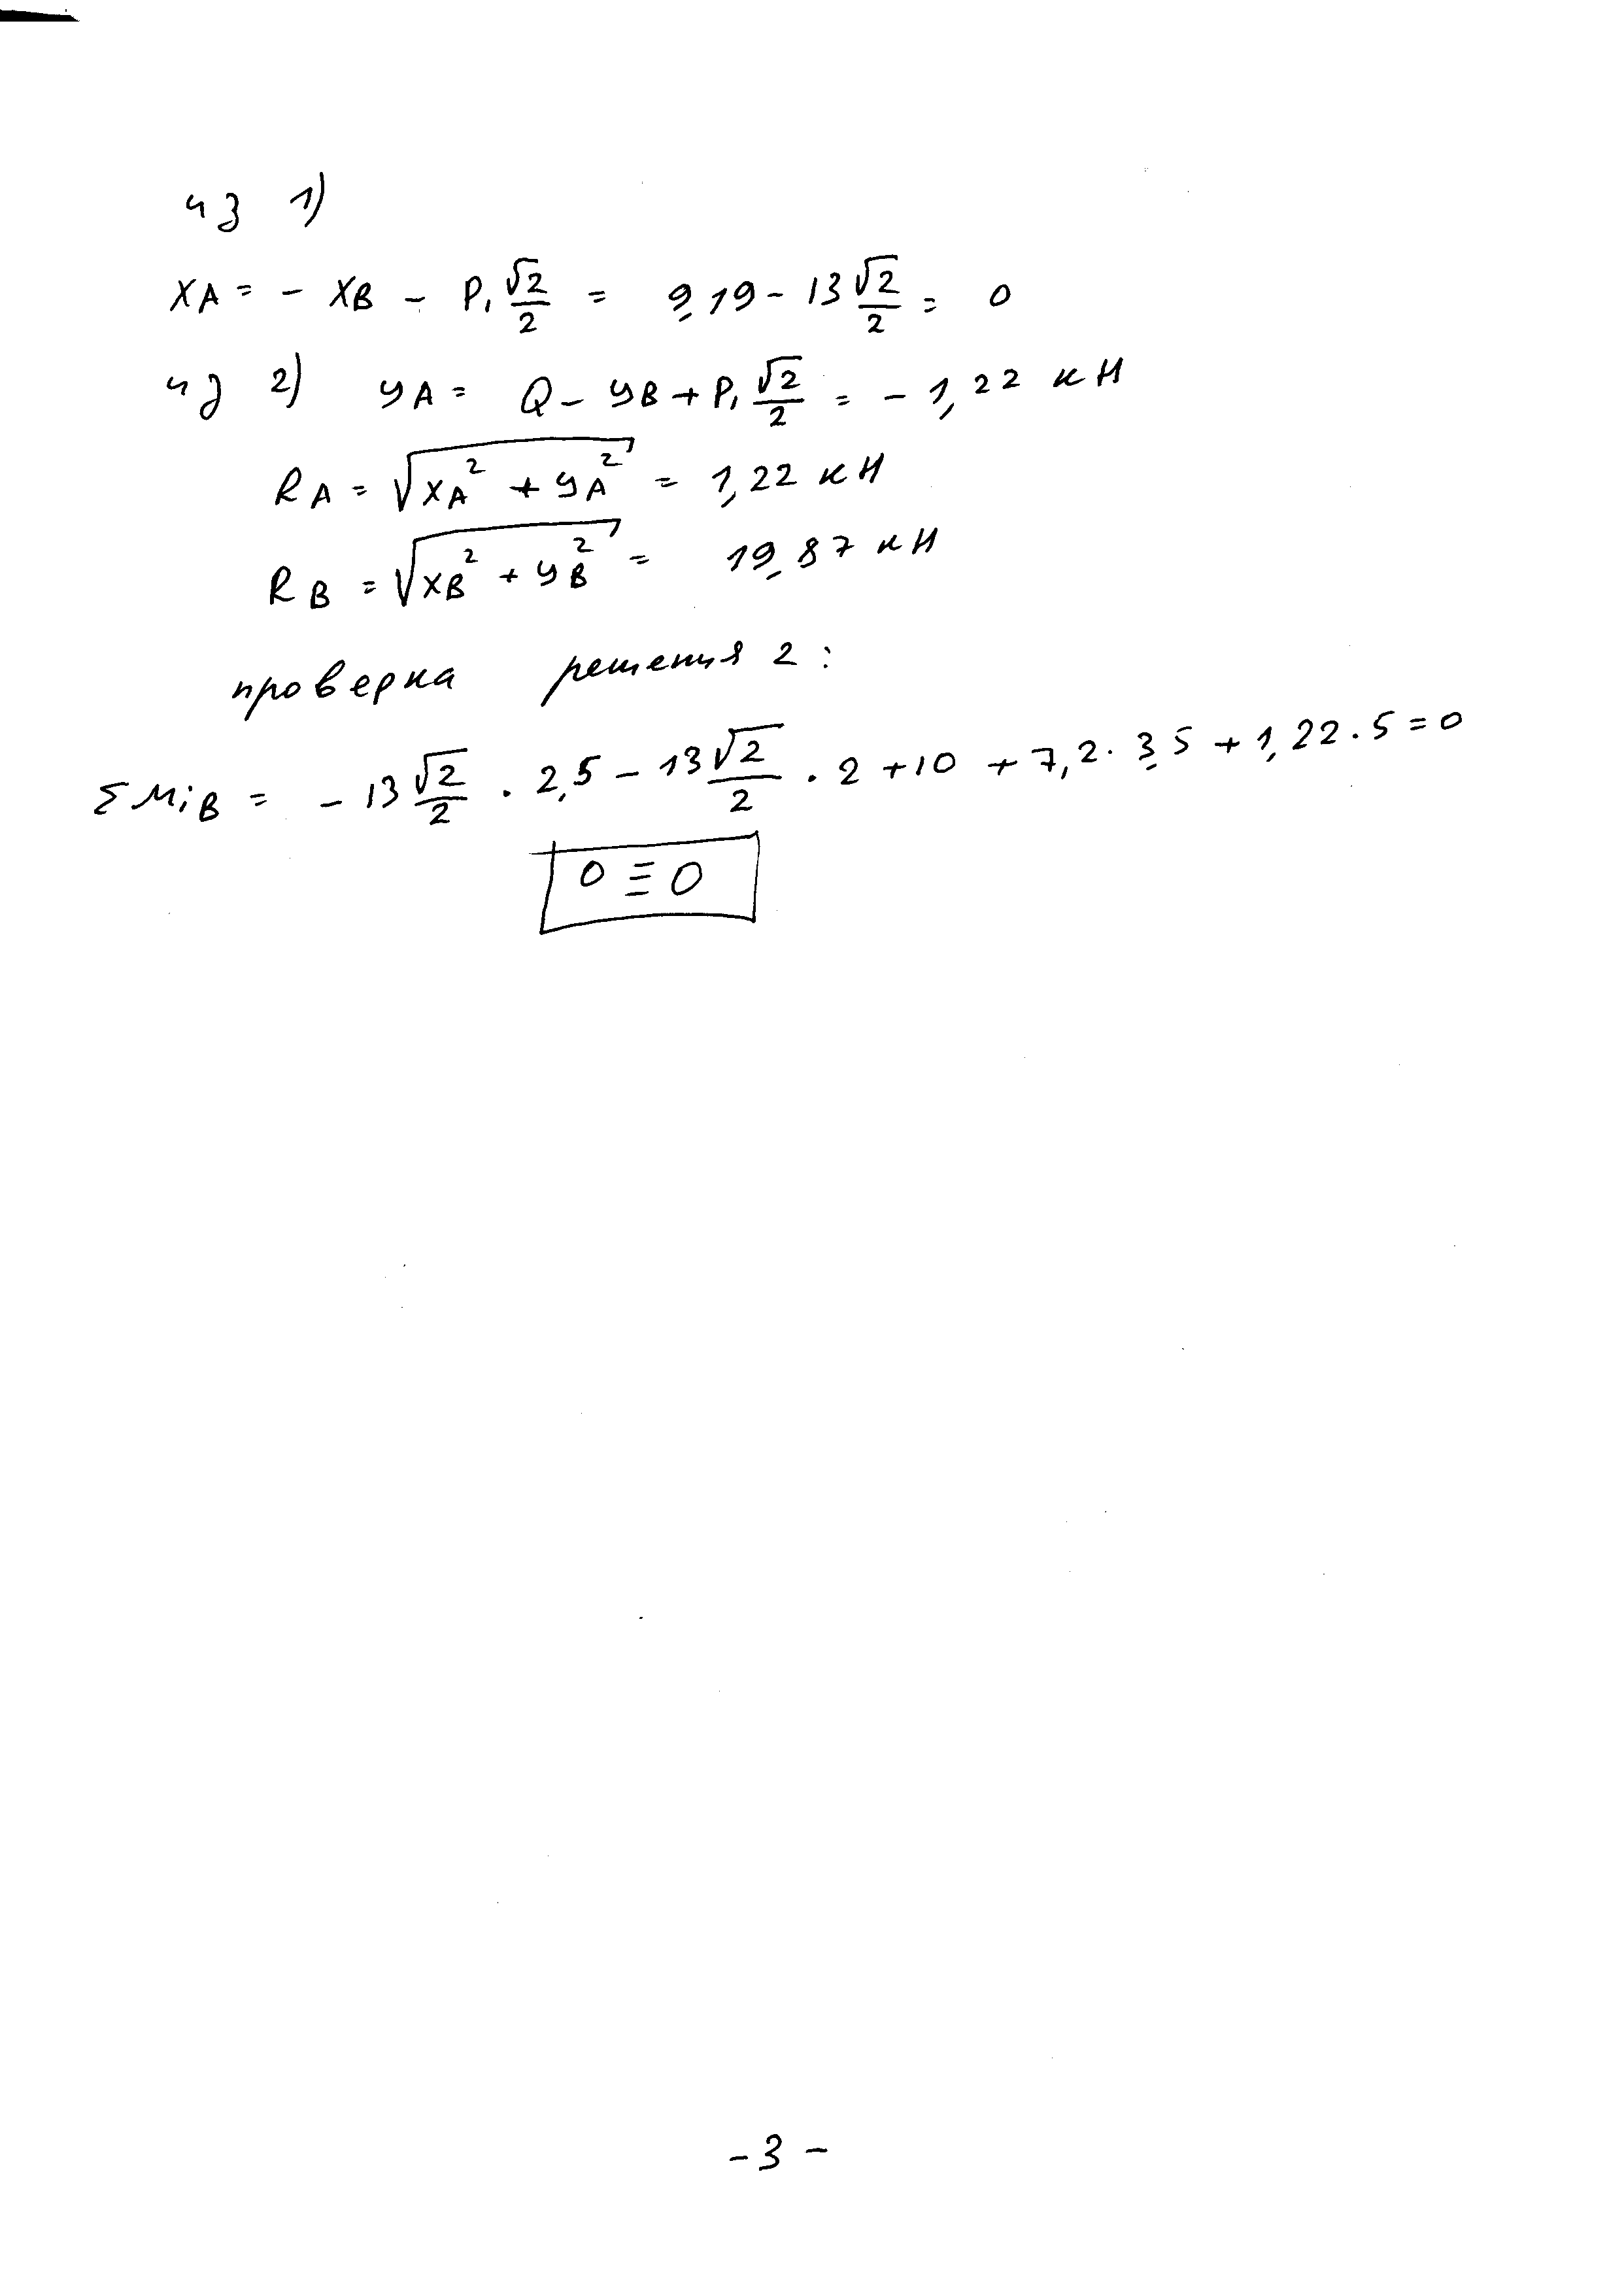 из 1)
XA = - XB - P₁ √2/2 = 9,19 - 13 √2/2 = 0
из 2) YA = Q - YB + P₁ √2/2 = - 1,22 кН
RA = √(XA² + YA²) = 1,22 кН
RB = √(XB² + YB²) = 19,87 кН
проверка решения 2:
ΣMiB = - 13 √2/2 · 2,5 - 13 √2/2 · 2 + 10 + 7,2 · 3,5 + 1,22 · 5 = 0
0 ≡ 0
- 3 -